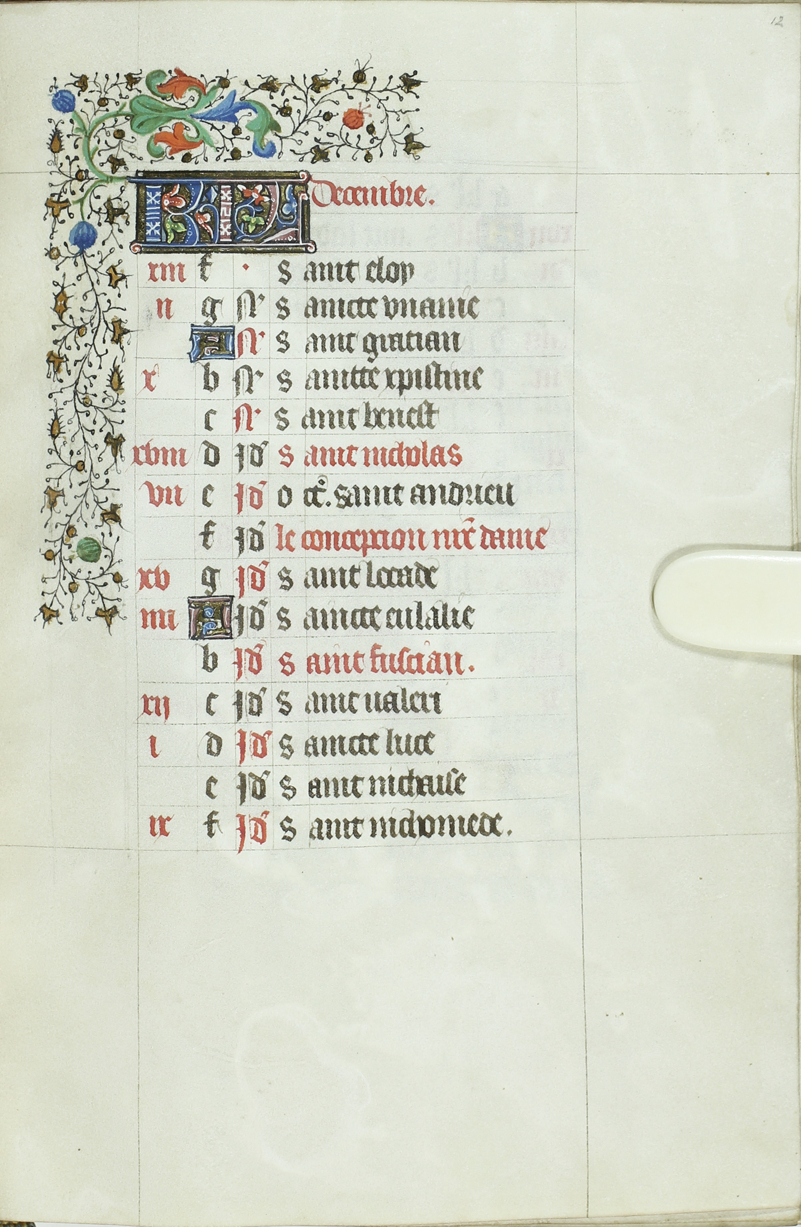 12
KL Decembre.
xiii f · Saint eloy
ii g N͛ Saincte viuaine
A N͛ Saint gratian
x b N͛ Saincte xpistine
c N͛ Saint benest
xviii d Id͛ Saint nicholas
vii e Id͛ Oct͛. saint andrieu
f Id͛ le conception nr̄e dame
xv g Id͛ Saint locade
iiii A Id͛ Saincte eulalie
b Id͛ Saint fuscian.
xij c Id͛ Saint ualeri
i d Id͛ Saincte luce
e Id͛ Saint nichaise
ix f Id͛ Saint nichomede.